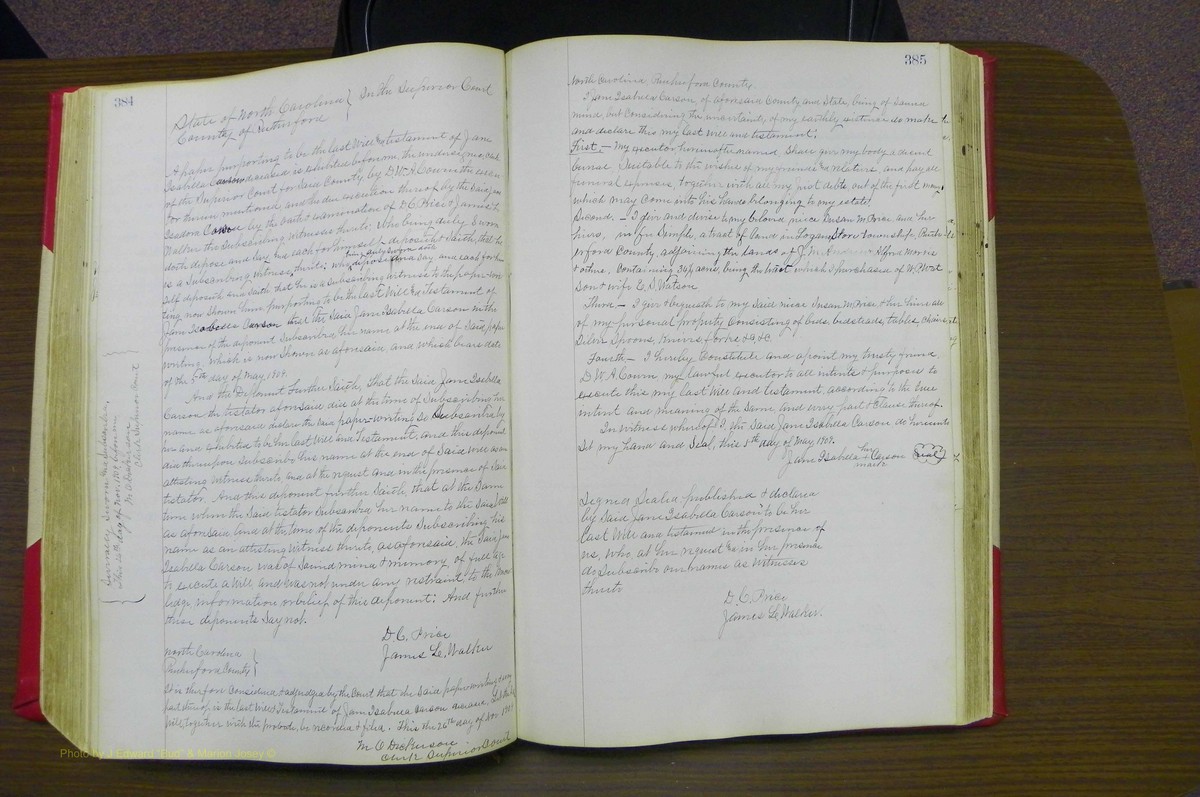 384
State of North Carolina } In the Superior Court
County of Rutherford
A paper purporting to be the last Will & testament of Jane
Isabella Carson deceased is exhibited before me, the undersigned Clerk
of the Superior Court for said County by D. W. A. Cowan the execu
tor therein mentioned and the due execution thereof by the said Jane
Isadora Carson by the oath & examination of D. C. Price & James L.
Walker the subscribing witnesses thereto: Who being duly sworn
doth depose and say, and each for himself deposeth & saith, that he
is a subscribing witness thereto; who being duly sworn doth depose and say, and each for him
self deposeth and saith that he is a subscribing witness to the paper-wri
ting now shown him, purporting to be the last Will & Testament of
Jane Isabella Carson that the said Jane Isabella Carson in the
presence of the deponent subscribed her name at the end of said paper
writing, which is now shown as aforesaid, and which bears date
of the 5th day of May 1909.
And the Deponent Further Saith, That the said Jane Isabella
Carson the testator aforesaid did at the time of subscribing her
name as aforesaid declare the said paper-writing so subscribed by
her and exhibited to be her last Will and Testament, and this deponent
did thereupon subscribe his name at the end of said will as an
attesting witness thereto and at the request and in the presence of said
testator. And this deponent further saith, that at the same
time when the said testator subscribed her name to the said will
as aforesaid, and at the time of the deponents subscribing his
name as an attesting witness thereto, as aforesaid, the said Jane
Isabella Carson was of sound mind & memory, of full age
to execute a Will, and was not under any restraint, to the know
ledge, information or belief of this deponent: And further
these deponents say not.
D. C. Price
James L. Walker
Severally sworn and subscribed,
this 26th day of Nov. 1909, before me
M. O. Dickerson
Clerk Superior Court
North Carolina }
Rutherford County }
It is therefore considered & adjudged by the Court that the said paper writing & every
part thereof is the last Will & Testament of Jane Isabella Carson deceased. Let the
Will, together with the probate, be recorded & filed. This the 26th day of Nov 1909
M. O. Dickerson
Clerk Superior Court
385
North Carolina, Rutherford County
I Jane Isabella Carson, of aforesaid County and State, being of sound
mind, but considering the uncertainty of my earthly existence do make
and declare this my last will and testament:
First.— My executor hereinafter named, shall give my body a decent
burial, suitable to the wishes of my friends & relatives, and pay all
funeral expenses, together with all my just debts, out of the first money
which may come into his hands belonging to my estate.
Second.— I give and devise to my beloved niece Susan M. Price and her
heirs, in fee simple, a tract of land in Logan Store Township, Ruth-
erford County, adjoining the lands of J. M. Alfred Morris
& others. Containing 34½ acres, being the tract which I purchased of W. P. Wat
son & wife E. S. Watson
Third— I give & bequeath to my said niece Susan M Price & her heirs all
of my personal property consisting of beds, bedsteads, tables, chairs
Silver Spoons, knives, forks &c &c
Fourth— I hereby constitute and apoint my trusty friend
D. W. A. Cowan my lawful executor to all intents & purposes to
execute this my last Will and testament, according to the true
intent and meaning of the same and every part & clause thereof.
In witness whereof I, the said Jane Isabella Carson do hereunto
set my hand and seal, this 5th day of May 1909.
Jane Isabella her x mark Carson (seal)
Signed, sealed published & declared
by said Jane Isabella Carson to be her
last Will and testament in the presence of
us, who, at her request & in her presence
do subscribe our names as witnesses
thereto
D. C. Price
James L. Walker.
Photo by J Edward "Bud" & Marion Josey ©